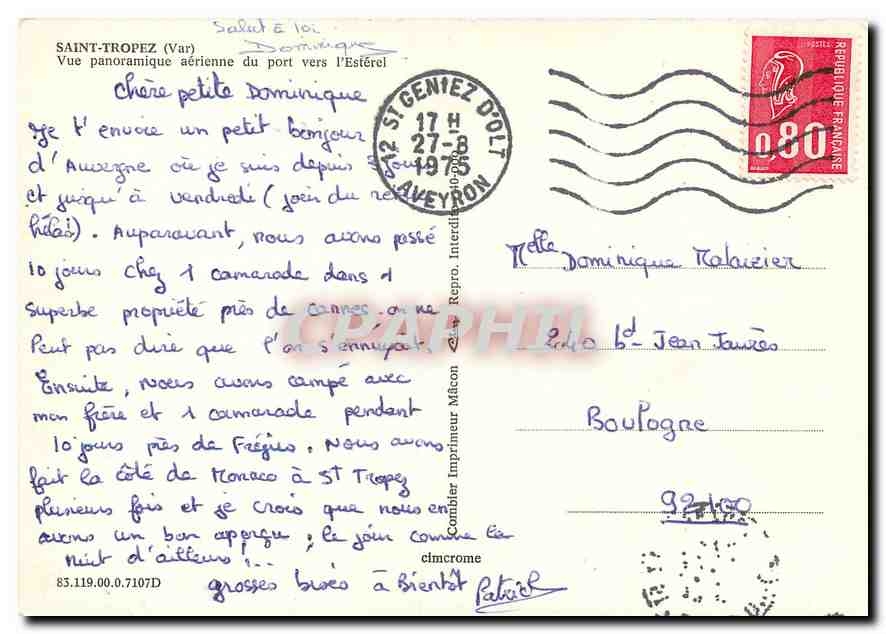 Salut à toi
Dominique
SAINT-TROPEZ (Var)
Vue panoramique aérienne du port vers l'Estérel
Chère petite Dominique
Je t'envoie un petit bonjour
d'Auvergne où je suis depuis jours
et jusqu'à vendredi (jour du
hélas!). Auparavant, nous avons passé
10 jours chez 1 camarade dans 1
superbe propriété près de Cannes. on ne
Peut pas dire que l'on s'ennuyait.
Ensuite, nous avons campé avec
mon frère et 1 camarade pendant
10 jours près de Fréjus. Nous avons
fait la côte de Monaco à St Tropez
plusieurs fois et je crois que nous en
avons un bon aperçu ; le jour comme la
nuit d'ailleurs !...
grosses bises à Bientôt Patrick
83.119.00.0.7107D
cimcrome
Combier Imprimeur Mâcon Repro. Interdite
12 ST GENIEZ D'OLT
17 H
27-8
1975
AVEYRON
POSTES
REPUBLIQUE FRANÇAISE
0,80
CPAPHIL
Melle Dominique Malaizier
240 bd Jean Jaurès
Boulogne
92100